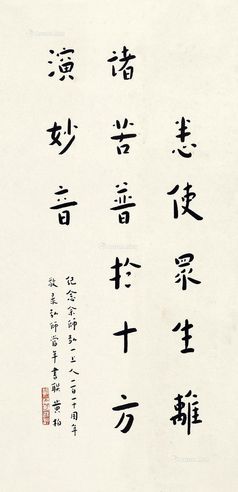 悉使眾生離
諸苦普於十方
演妙音
紀念余師弘一上人一百一十周年
敬录弘師當年書联 黄柏